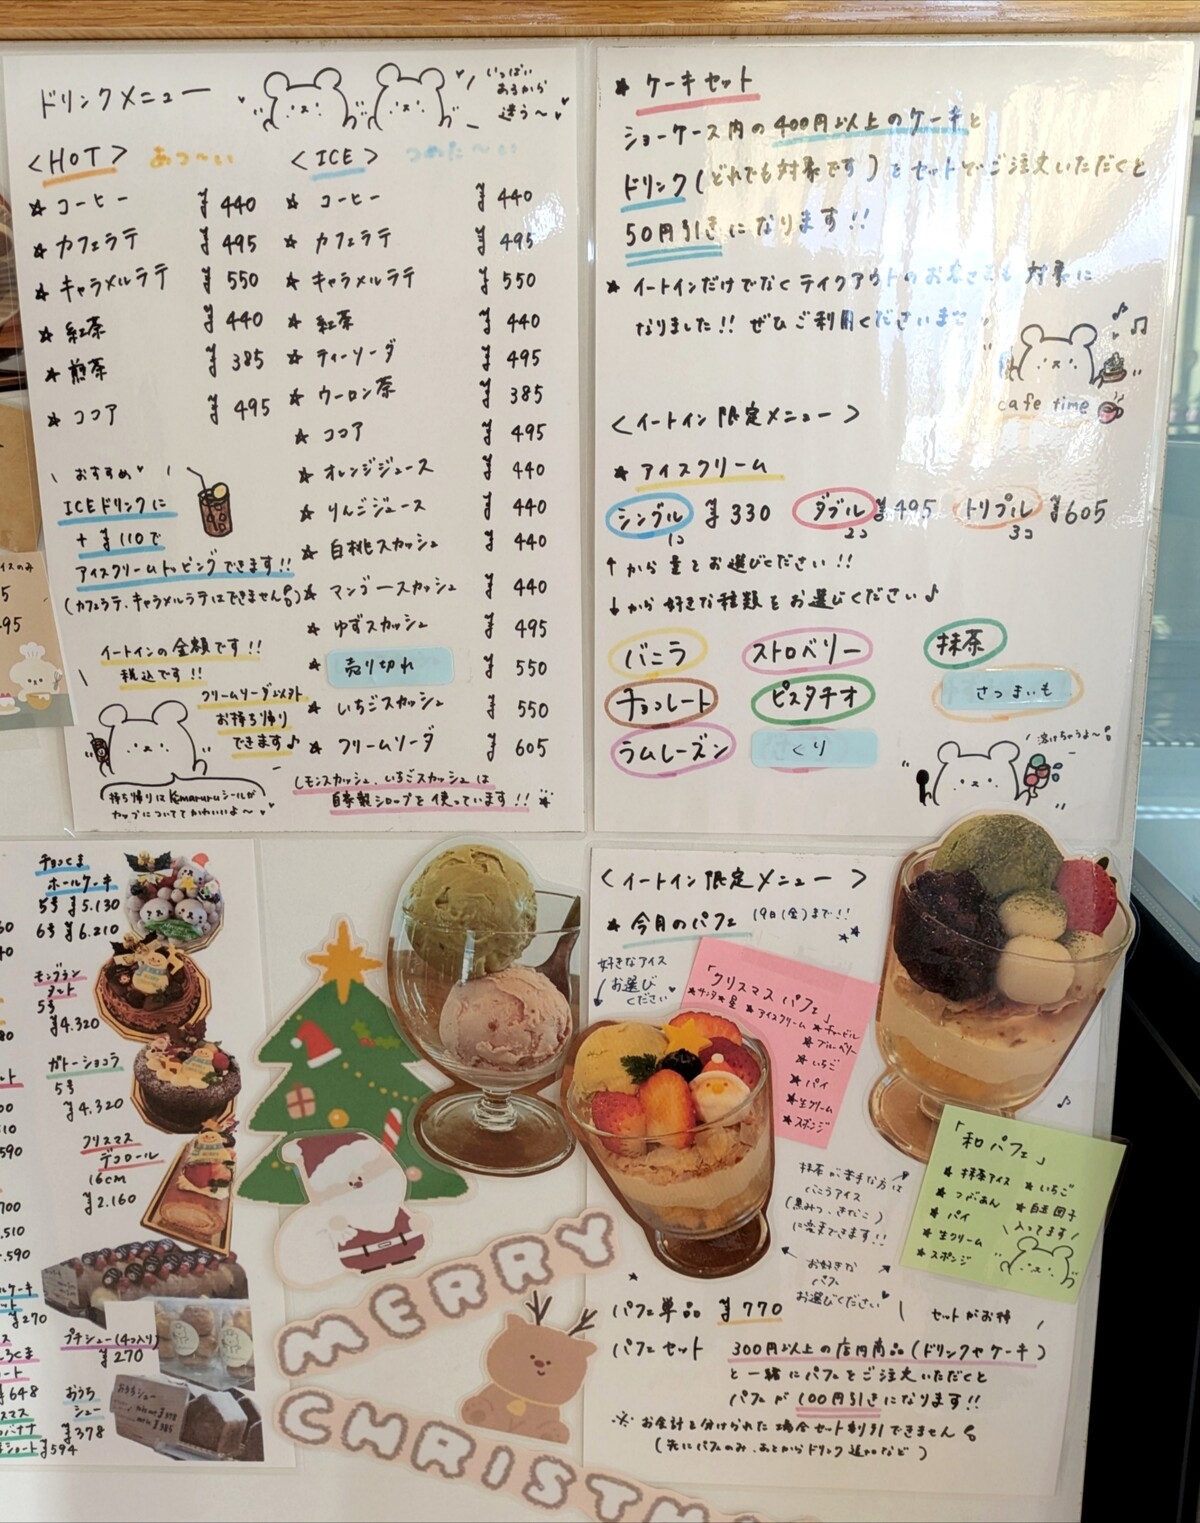 ドリンクメニュー
いっぱい
あるから
迷う〜
<HOT> あつ〜い
☆ コーヒー ¥440
☆ カフェラテ ¥495
☆ キャラメルラテ ¥550
☆ 紅茶 ¥440
☆ 煎茶 ¥385
☆ ココア ¥495
<ICE> つめた〜い
☆ コーヒー ¥440
☆ カフェラテ ¥495
☆ キャラメルラテ ¥550
☆ 紅茶 ¥440
☆ ティーソーダ ¥495
☆ ウーロン茶 ¥385
☆ ココア ¥495
☆ オレンジジュース ¥440
☆ りんごジュース ¥440
☆ 白桃スカッシュ ¥440
☆ マンゴースカッシュ ¥440
☆ ゆずスカッシュ ¥495
☆ 売り切れ ¥550
☆ いちごスカッシュ ¥550
☆ クリームソーダ ¥605
おすすめ
ICEドリンクに
+¥110で
アイスクリームトッピングできます!!
(カフェラテ、キャラメルラテはできません)
イートインの金額です!!
税込です!!
クリームソーダ以外
お持ち帰り
できます♪
持ち帰りはKumaruruシールが
カップについててかわいいよ〜
レモンスカッシュ、いちごスカッシュは
自家製シロップを使っています!!
★ ケーキセット
ショーケース内の400円以上のケーキと
ドリンク(どれでも対象です)をセットでご注文いただくと
50円引きになります!!
★ イートインだけでなくテイクアウトのお客さまも対象に
なりました!! ぜひご利用くださいませ
cafe time
<イートイン限定メニュー>
★ アイスクリーム
シングル ¥330 ダブル ¥495 トリプル ¥605
1コ 2コ 3コ
↑から量をお選びください!!
↓から好きな種類をお選びください♪
バニラ ストロベリー 抹茶
チョコレート ピスタチオ さつまいも
ラムレーズン くり
溶けちゃうよ〜
<イートイン限定メニュー>
★ 今月のパフェ 19日(金)まで!!
好きなアイス
お選び
ください
「クリスマスパフェ」
★サンタ★星
★アイスクリーム ★チャービル
★ブルーベリー
★いちご
★パイ
★生クリーム
★スポンジ
「和パフェ」
★ 抹茶アイス ★いちご
★ つぶあん ★白玉団子
★ パイ 入ってます
★ 生クリーム
★ スポンジ
抹茶が苦手な方は
バニラアイス
(黒みつ、きなこ)
に変更できます!!
お好きな
パフェ
お選びください
パフェ単品 ¥770
セットがお得
パフェセット 300円以上の店内商品(ドリンクやケーキ)
と一緒にパフェをご注文いただくと
パフェが100円引きになります!!
※ お会計を分けられた場合セット割引できません
(先にパフェのみ、あとからドリンク追加など)
チョコくま
ホールケーキ
5号 ¥5.130
6号 ¥6.210
モンブラン
タルト
5号
¥4.320
ガトーショコラ
5号
¥4.320
クリスマス
デコロール
16cm
¥2.160
プチシュー(4つ入り)
¥270
おうち
シュー
¥378
¥270
¥648
¥594
MERRY
CHRISTM